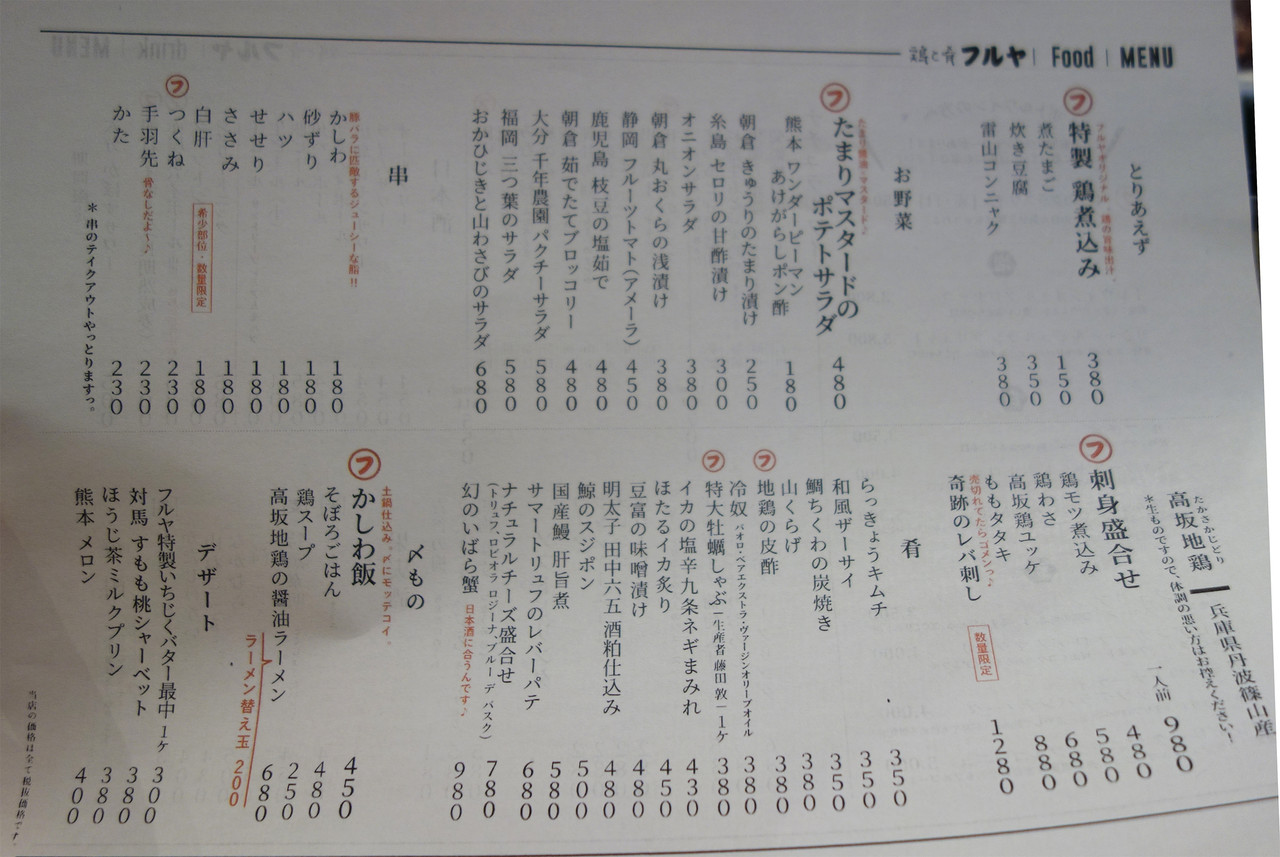 鶏と肴 フルヤ | Food | MENU
とりあえず
フルヤオリジナル 鶏の旨味出汁
フ 特製 鶏煮込み 380
煮たまご 150
炊き豆腐 350
雷山コンニャク 380
お野菜
たまり醤油+マスタード♪
フ たまりマスタードの
ポテトサラダ 480
熊本 ワンダーピーマン
あけがらしポン酢 180
朝倉 きゅうりのたまり漬け 250
糸島 セロリの甘酢漬け 300
オニオンサラダ 380
朝倉 丸おくらの浅漬け 380
静岡 フルーツトマト(アメーラ) 450
鹿児島 枝豆の塩茹で 480
朝倉 茹でたてブロッコリー 480
大分 千年農園パクチーサラダ 580
福岡 三つ葉のサラダ 580
おかひじきと山わさびのサラダ 680
串
豚バラに匹敵するジューシーな脂!!
かしわ 180
砂ずり 180
ハツ 180
せせり 180
ささみ 180
白肝 希少部位・数量限定 180
フ つくね 230
手羽先 骨なしだよ〜♪ 230
かた 230
*串のテイクアウトやっとりますっ。
たかさかじどり
高坂地鶏 ― 兵庫県丹波篠山産
*生ものですので、体調の悪い方はお控えください!
フ 刺身盛合せ 一人前 980
鶏モツ煮込み 480
鶏わさ 580
高坂鶏ユッケ 680
ももタタキ 880
売切れてたらゴメンっ♪
奇跡のレバ刺し 数量限定 1280
肴
らっきょうキムチ 350
和風ザーサイ 350
鯛ちくわの炭焼き 350
山くらげ 380
フ 地鶏の皮酢 380
冷奴 パオロ・ペアエクストラ・ヴァージンオリーブオイル 380
フ 特大牡蠣しゃぶ ー生産者 藤田 敦ー 1ヶ 380
イカの塩辛九条ネギまみれ 430
ほたるイカ炙り 450
豆富の味噌漬け 480
明太子 田中六五 酒粕仕込み 480
鯨のスジポン 500
国産鰻 肝旨煮 580
サマートリュフのレバーパテ 580
ナチュラルチーズ盛合せ 780
(トリュフ、ロビオラ ロジーナ、ブルー デ バスク)
幻のいばら蟹 日本酒に合うんです♪ 980
〆もの
土鍋仕込み。〆にモッテコイ。
フ かしわ飯 450
そぼろごはん 480
鶏スープ 250
高坂地鶏の醤油ラーメン 680
ラーメン替え玉 200
デザート
フルヤ特製いちじくバター最中 1ヶ 300
対馬 すもも桃シャーベット 380
ほうじ茶ミルクプリン 380
熊本 メロン 400
当店の価格は全て税抜価格です。